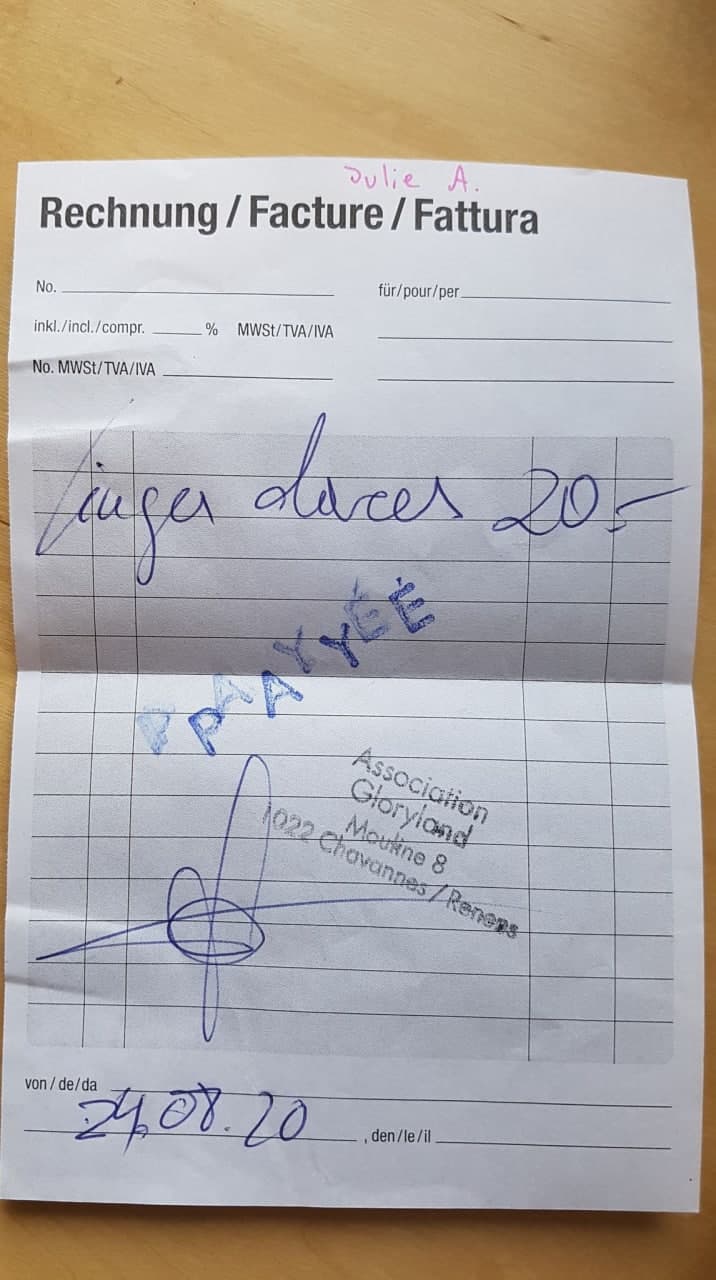 Julie A.
Rechnung / Facture / Fattura
No.
für/pour/per
inkl./incl./compr. % MWSt/TVA/IVA
No. MWSt/TVA/IVA
20.-
PAYÉ
PAYÉ
Association
Gloryland
Mouline 8
1022 Chavannes / Renens
von / de / da
24.08.20 , den/le/il